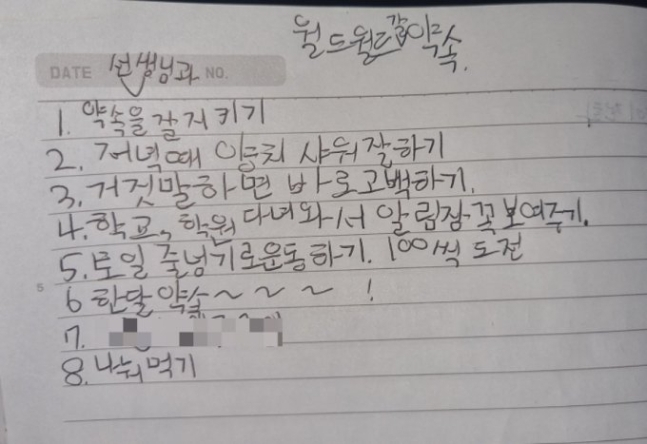 월드월드같이약속.
DATE 선생님과 NO.
1. 약속을 잘 지키기
2. 저녁때 이동희 샤워잘하기
3. 거짓말하면 바로고백하기.
4. 학교, 학원 다녀와서 알림장 꼭 보여주기.
5. 토일 줄넘기로운동하기. 100씩 도전
5
6 한달 약속~ ~ ~ !
7.
8. 나눠먹기